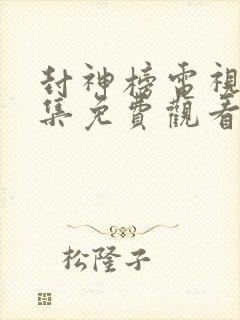 封神榜電視
集免費觀看
松隆子